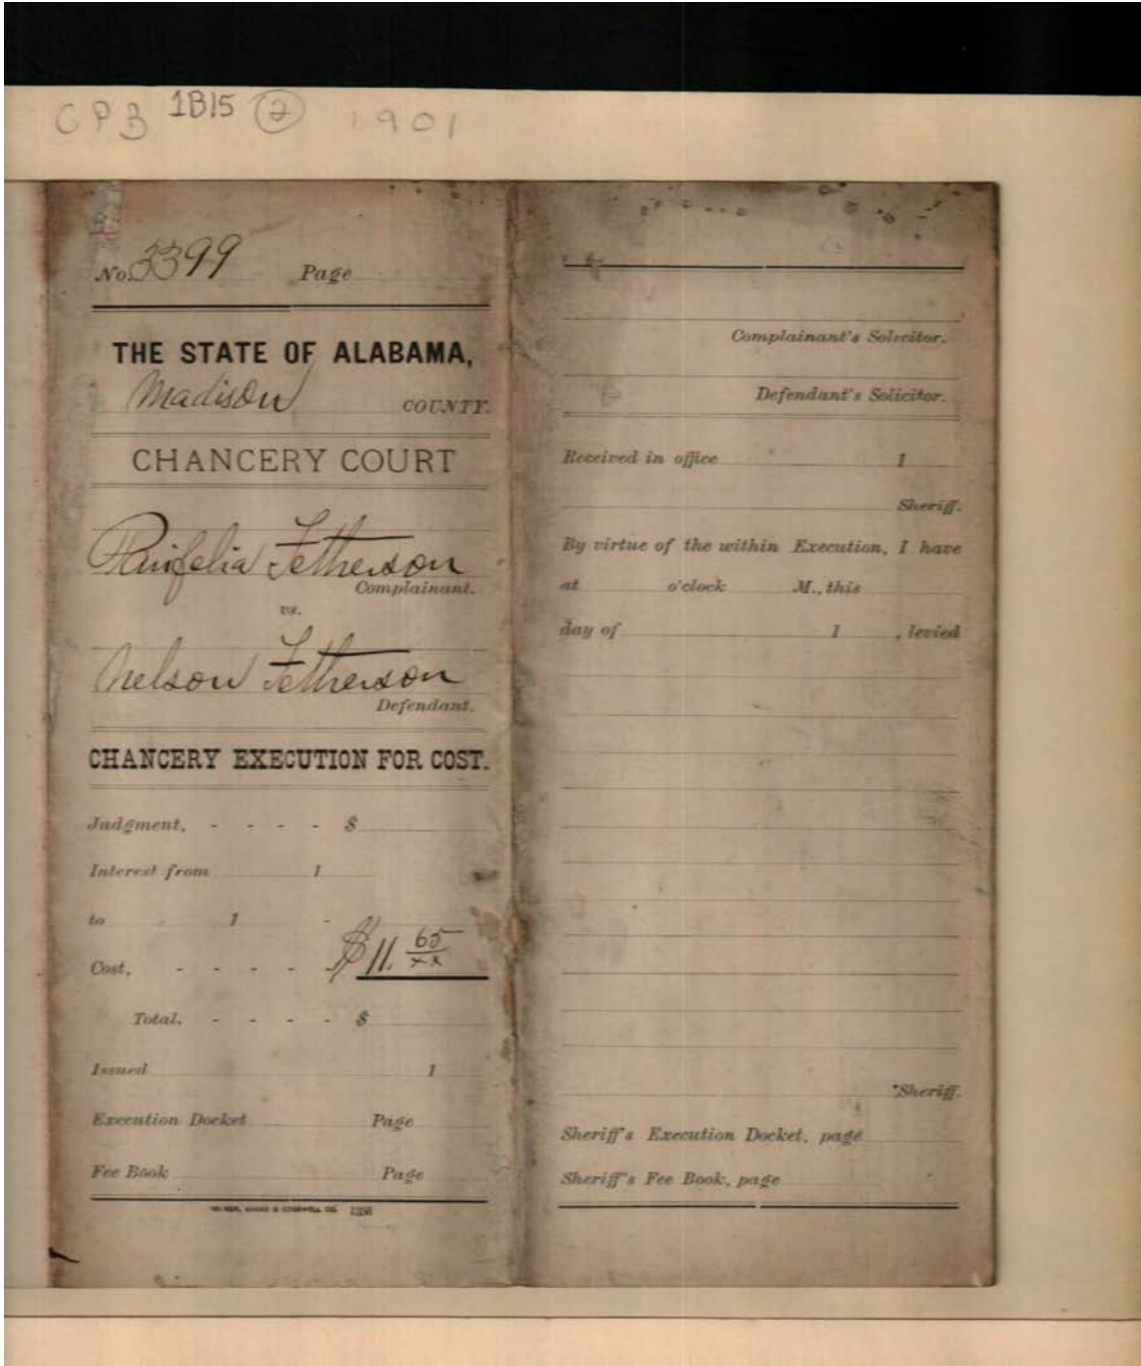 CPB 1B15 2 1901
No. 3399 Page
THE STATE OF ALABAMA,
Madison COUNTY.
CHANCERY COURT
Fetherson
Complainant.
vs.
Nelson Fetherson
Defendant.
CHANCERY EXECUTION FOR COST.
Judgment, - - - - $
Interest from 1
to 1 -
Cost, - - - - $11. 65/xx
Total. - - - - $
Issued 1
Execution Docket Page
Fee Book Page
Complainant's Solicitor.
Defendant's Solicitor.
Received in office 1
Sheriff.
By virtue of the within Execution, I have
at o'clock M., this
day of 1 , levied
Sheriff.
Sheriff's Execution Docket, page
Sheriff's Fee Book, page